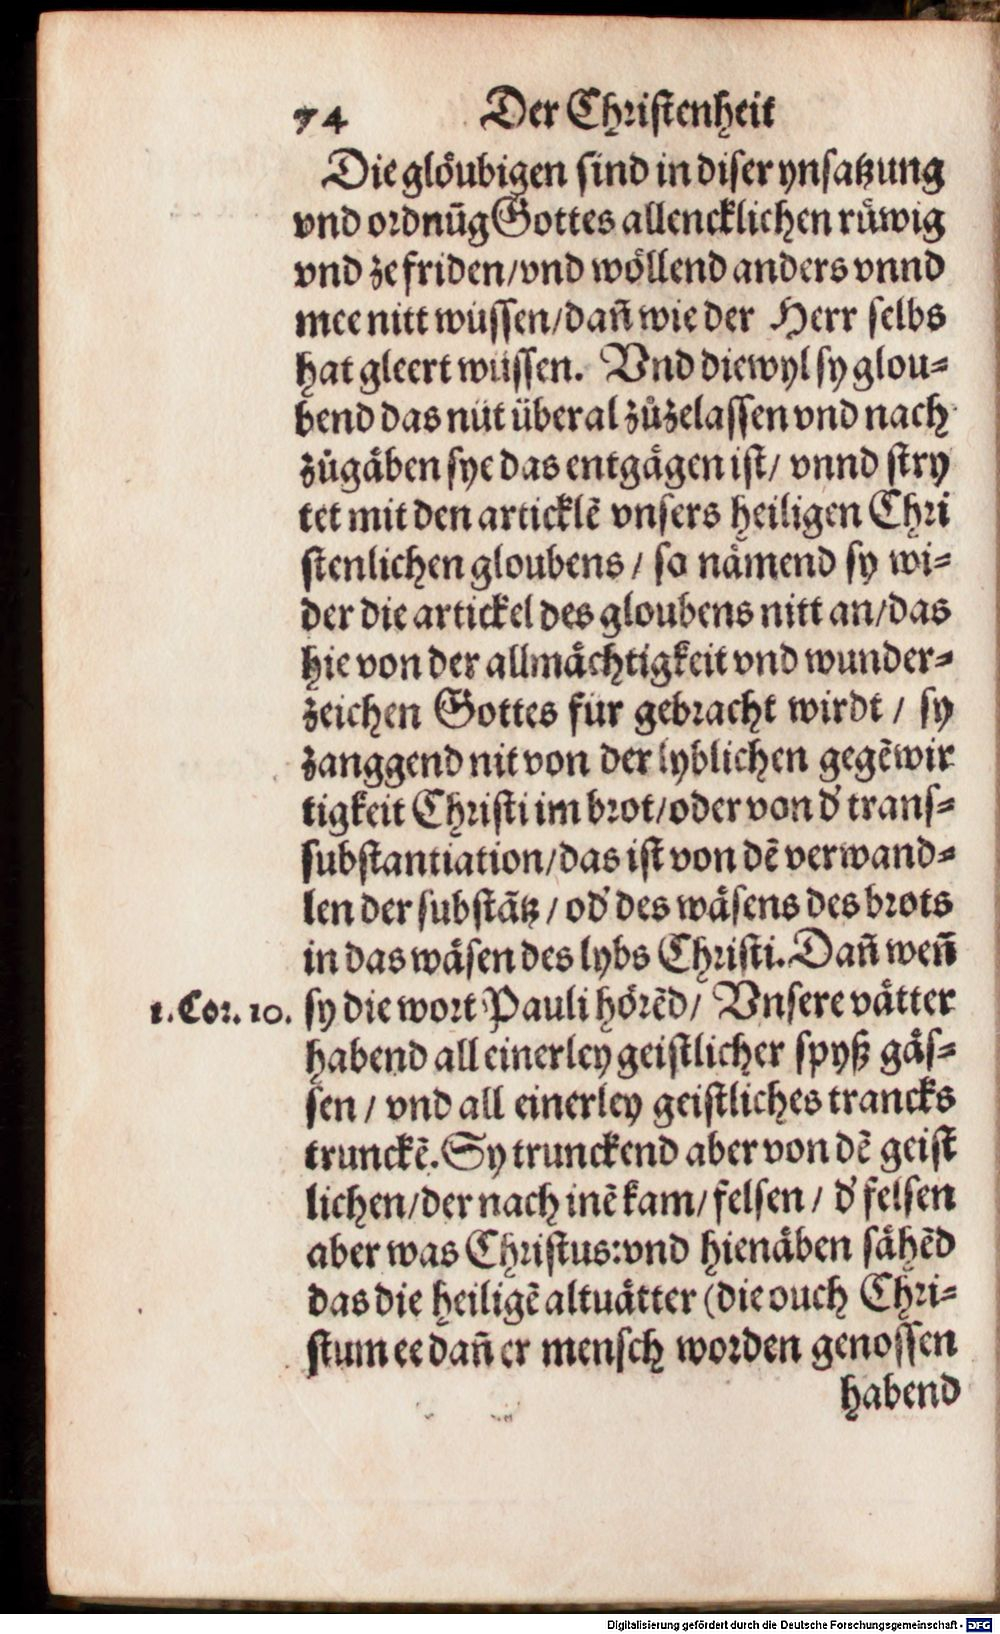 74 Der Christenheit
Die glöubigen sind in diser ynsatzung
vnd ordnũg Gottes allencklichen rüwig
vnd ze friden/vnd wöllend anders vnnd
mee nitt wüssen/dañ wie der Herr selbs
hat gleert wüssen. Vnd diewyl sy glou-
bend das nüt überal zůzelassen vnd nach
zůgäben sye das entgägen ist/ vnnd stry
tet mit den articklẽ vnsers heiligen Chri
stenlichen gloubens / so nämend sy wi-
der die artickel des gloubens nitt an/das
hie von der allmächtigkeit vnd wunder-
zeichen Gottes für gebracht wirdt / sy
zanggend nit von der lyblichen gegẽwir
tigkeit Christi im brot/oder von d' trans-
substantiation/das ist von dẽ verwand-
len der substãtz / od' des wäsens des brots
in das wäsen des lybs Christi. Dañ weñ
1.Cor. 10. sy die wort Pauli hörẽd/ Vnsere vätter
habend all einerley geistlicher spyß gäs-
sen / vnd all einerley geistliches trancks
trunckẽ. Sy trunckend aber von dẽ geist
lichen/der nach inẽ kam/felsen / d' felsen
aber was Christus:vnd hienäben sähẽd
das die heiligẽ altuätter (die ouch Chri-
stum ee dañ er mensch worden genossen
habend
Digitalisierung gefördert durch die Deutsche Forschungsgemeinschaft - DFG